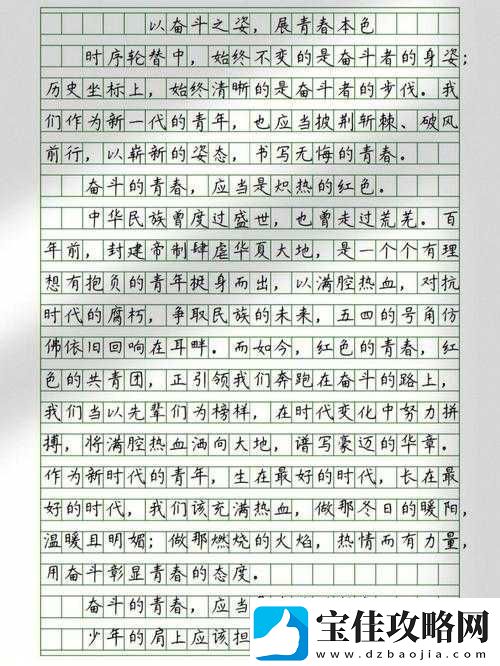 以奋斗之姿，展青春本色
时序轮替中，始终不变的是奋斗者的身姿；
历史坐标上，始终清晰的是奋斗者的步伐。我
们作为新一代的青年，也应当披荆斩棘、破风
前行，以崭新的姿态，书写无悔的青春。
奋斗的青春，应当是炽热的红色。
中华民族曾度过盛世，也曾走过荒芜。百
年前，封建帝制肆虐华夏大地，是一个个有理
想有抱负的青年挺身而出，以满腔热血，对抗
时代的腐朽，争取民族的未来，五四的号角仿
佛依旧回响在耳畔。而如今，红色的青春，红
色的共青团，正引领我们奔跑在奋斗的路上，
我们当以先辈们为榜样，在时代变化中努力拼
搏，将满腔热血洒向大地，谱写豪迈的华章。
作为新时代的青年，生在最好的时代，长在最
好的时代，我们该充满热血，做那冬日的暖阳，
温暖且明媚；做那燃烧的火焰，热情而有力量，
用奋斗彰显青春的态度。
奋斗的青春，应当
少年的肩上应该担
宝佳攻略网
www.dzbaojia.com